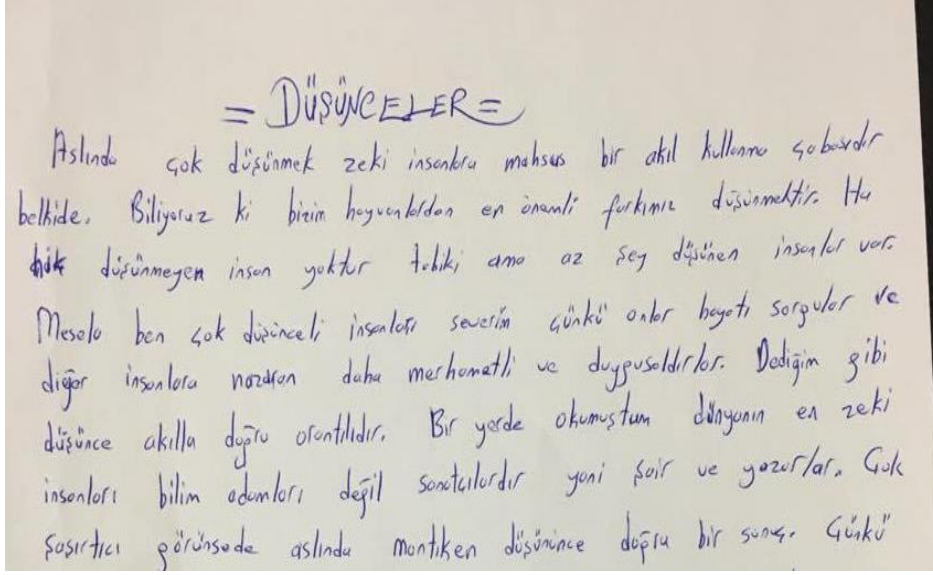 = DÜŞÜNCELER =
Aslında çok düşünmek zeki insanlara mahsus bir akıl kullanma çabasıdır
belkide. Biliyoruz ki bizim hayvanlardan en önemli farkımız düşünmektir. Ha
hiç düşünmeyen insan yoktur tabiki ama az şey düşünen insanlar var.
Mesela ben çok düşünceli insanları severim çünkü onlar hayatı sorgular ve
diğer insanlara nazaran daha merhametli ve duygusaldırlar. Dediğim gibi
düşünce akılla doğru orantılıdır. Bir yerde okumuştum dünyanın en zeki
insanları bilim adamları değil sanatçılardır yani şair ve yazarlar. Çok
şaşırtıcı görünsede aslında mantıken düşününce doğru bir sonuç. Çünkü